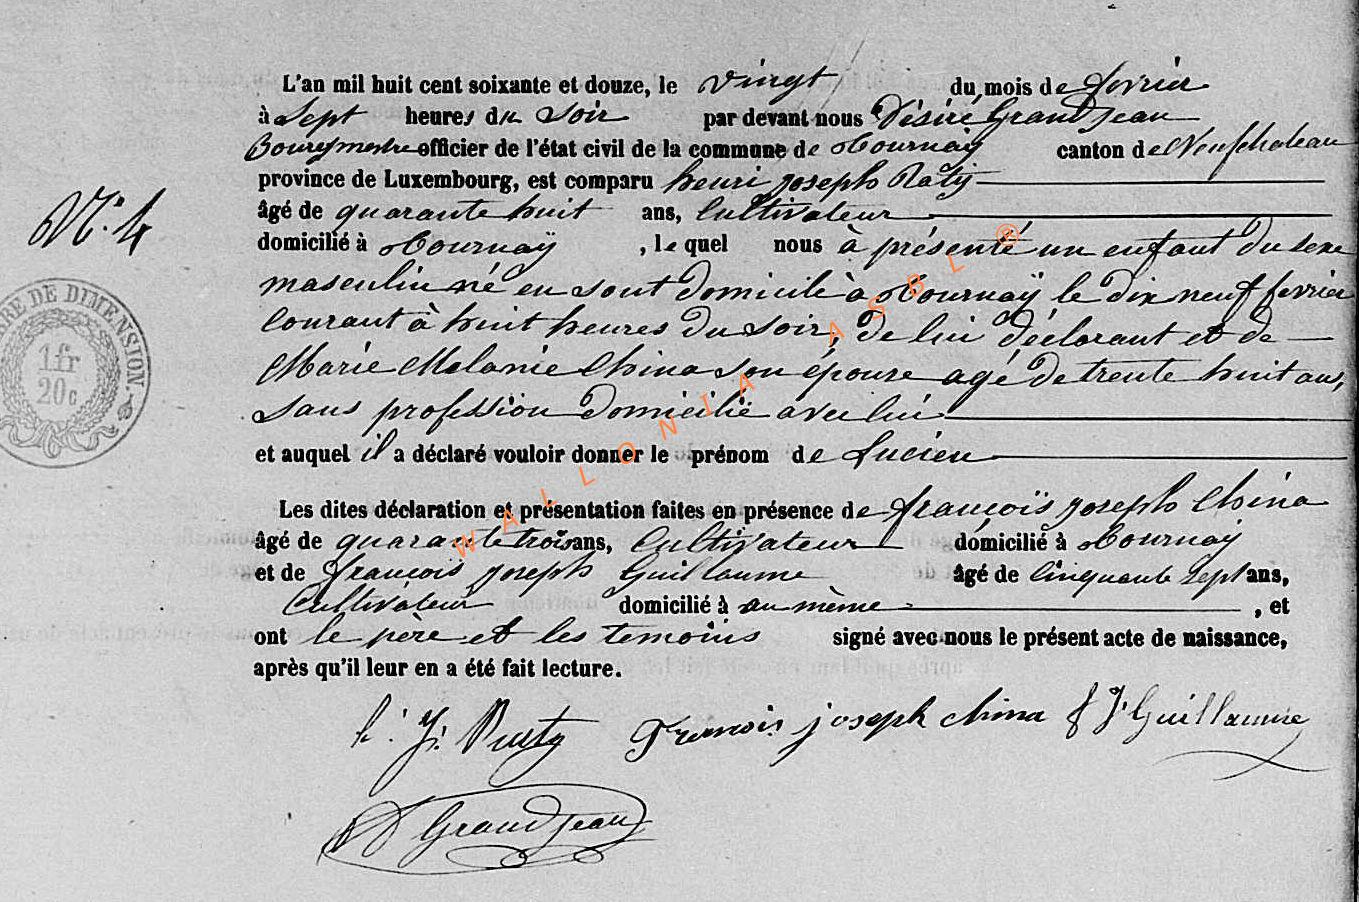 L'an mil huit cent soixante et douze, le vingt du mois de fevrier
à sept heures du soir par devant nous Désiré Grandjean
Bourgmestre officier de l'état civil de la commune de Tournay canton de Neufchateau
province de Luxembourg, est comparu henri joseph Raty
N.º 4
âgé de quarante huit ans, Cultivateur
domicilié à Tournaÿ , le quel nous à présenté un enfant du sexe
masculin né en sont domicile à Tournaÿ le dix neuf fevrier
courant à huit heures du soir, de lui déclarant et de
Marie Melanie China son épouse agé de trente huit ans,
sans profession domicilié avec lui
et auquel il a déclaré vouloir donner le prénom de Lucien
Les dites déclaration et présentation faites en présence de françois joseph China
âgé de quarante trois ans, Cultivateur domicilié à Tournay
et de françois joseph Guillaume âgé de cinquante sept ans,
Cultivateur domicilié à au même , et
ont le père et les temoins signé avec nous le présent acte de naissance,
après qu'il leur en a été fait lecture.
h. j. Raty François joseph China f J Guillaume
D Grandjean
DE DIMENSION
1fr
20c
WALLONIA ASBL ®